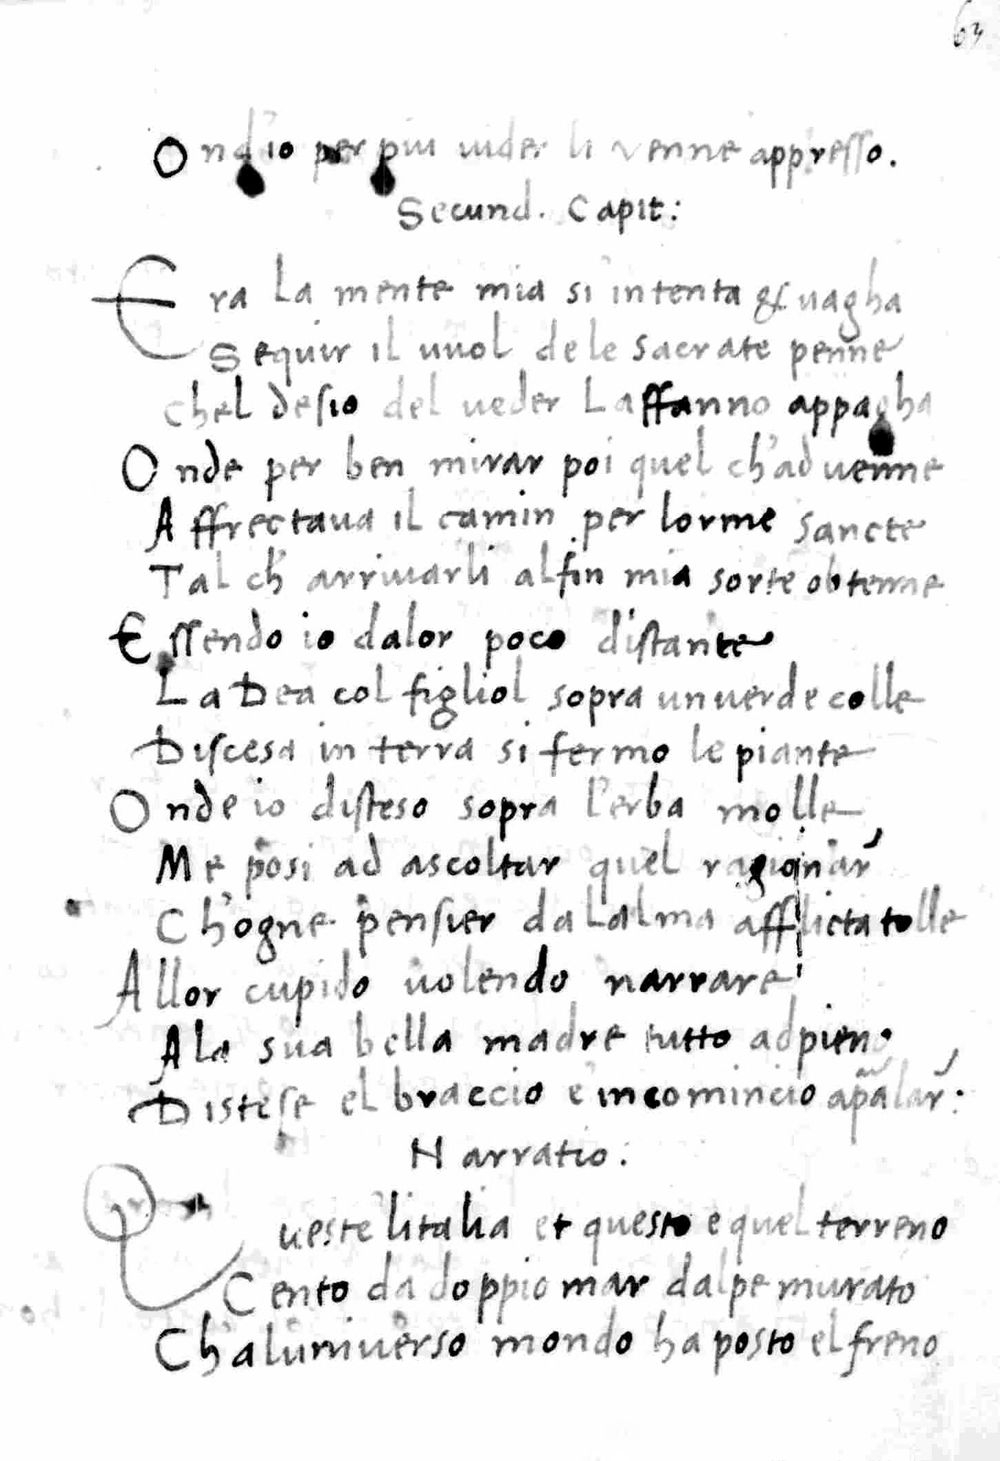 63
Ond'io per piu uider li venne appresso.
Secund. Capit:
Era La mente mia si intenta & uagha
Sequir il uuol dele sacrate penne
chel desio del ueder Laffanno appagha
Onde per ben mirar poi quel ch'aduenne
Affrectaua il camin per lorme sancte
Tal ch' arriuarli alfin mia sorte obtenne
Essendo io dalor poco distante
La Dea col figliol sopra un uerde colle
Discesa in terra si fermo le piante
Onde io disteso sopra l'erba molle
Me posi ad ascoltar quel ragionar
Ch'ogne pensier da Lalma afflicta tolle
Allor cupido uolendo narrare
Ala sua bella madre tutto ad pieno
Distese el braccio e incomincio a p̄alar:
Narratio:
Queste litalia et questo e quel terreno
Cento da doppio mar dalpe murato
Chaluniuerso mondo ha posto el freno